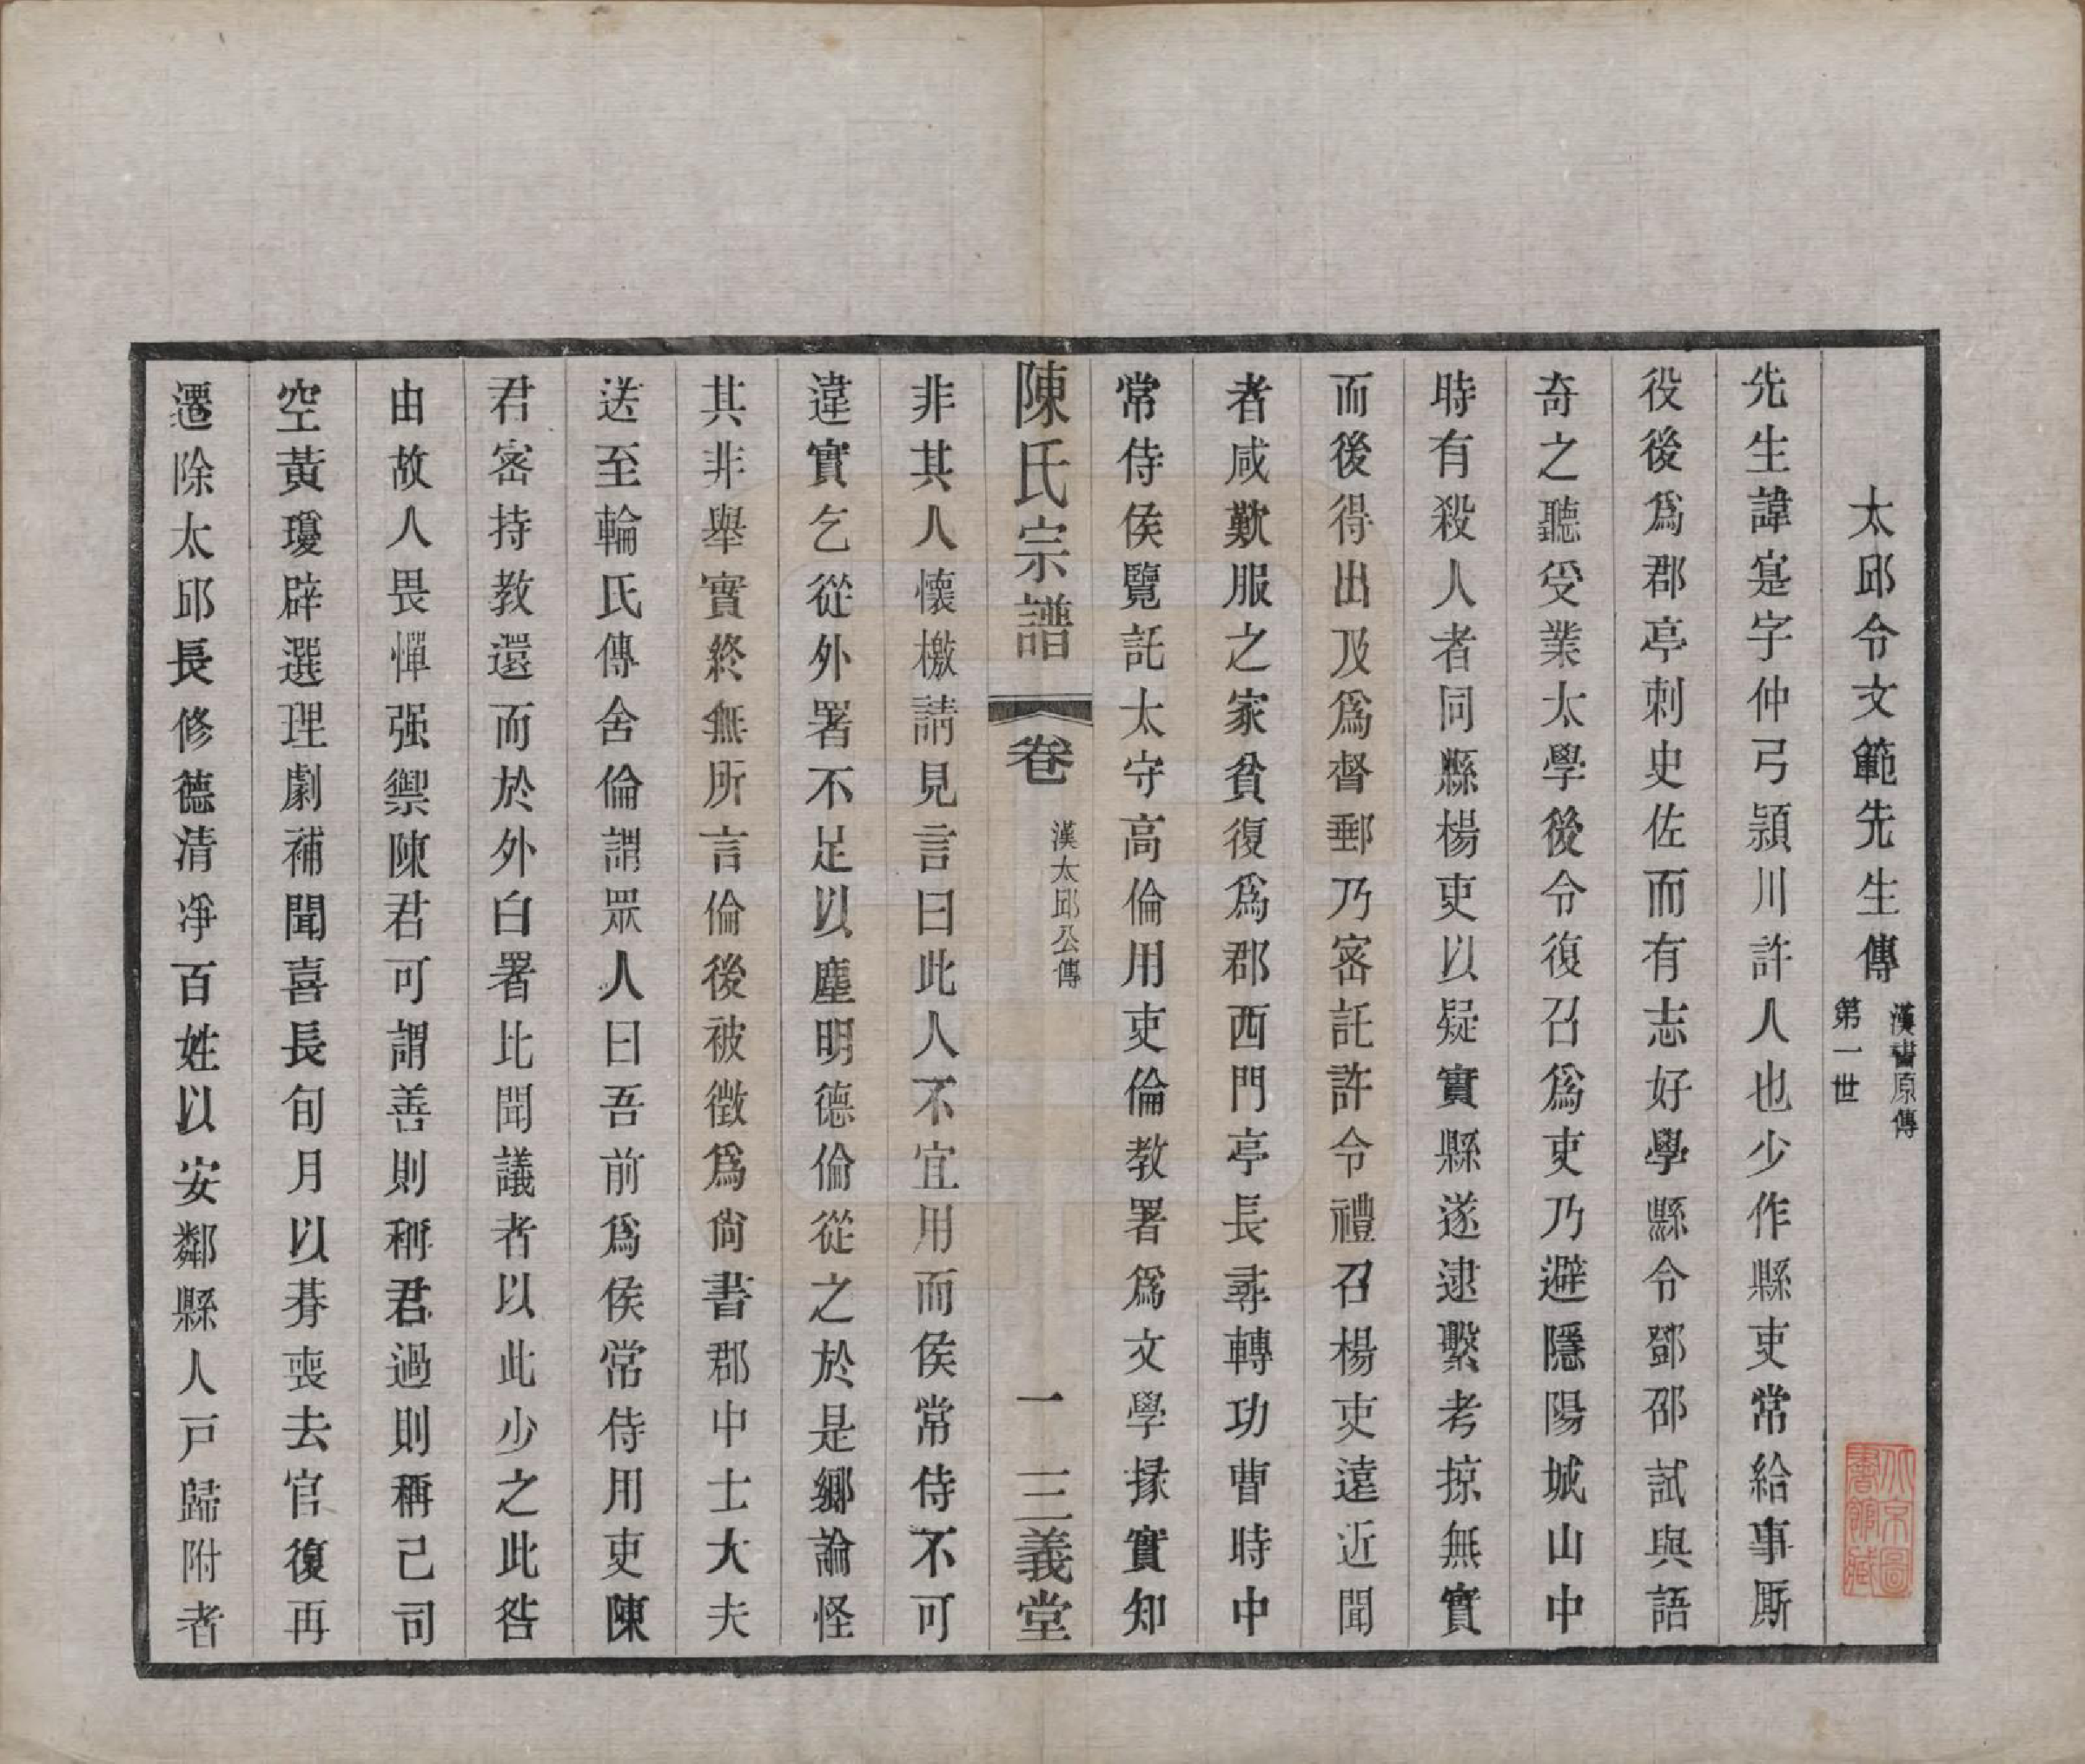 太邱令文範先生傳 漢書原傳 第一世
先生諱寔字仲弓潁川許人也少作縣吏常給事厮
役後爲郡亭刺史佐而有志好學縣令鄧邵試與語
奇之聽受業太學後令復召爲吏乃避隱陽城山中
時有殺人者同縣楊吏以疑實縣遂逮繫考掠無實
而後得出及爲督郵乃密託許令禮召楊吏遠近聞
者咸歎服之家貧復爲郡西門亭長尋轉功曹時中
常侍侯覽託太守高倫用吏倫教署爲文學掾實知
陳氏宗譜 卷 漢太邱公傳 一 三義堂
非其人懷檄請見言曰此人不宜用而侯常侍不可
違實乞從外署不足以塵明德倫從之於是鄉論怪
其非舉實終無所言倫後被徵爲尙書郡中士大夫
送至輪氏傳舍倫謂眾人曰吾前爲侯常侍用吏陳
君密持教還而於外白署比聞議者以此少之此咎
由故人畏憚强禦陳君可謂善則稱君過則稱己司
空黃瓊辟選理劇補聞喜長旬月以朞喪去官復再
遷除太邱長修德清凈百姓以安鄰縣人戸歸附者
北京圖書館藏